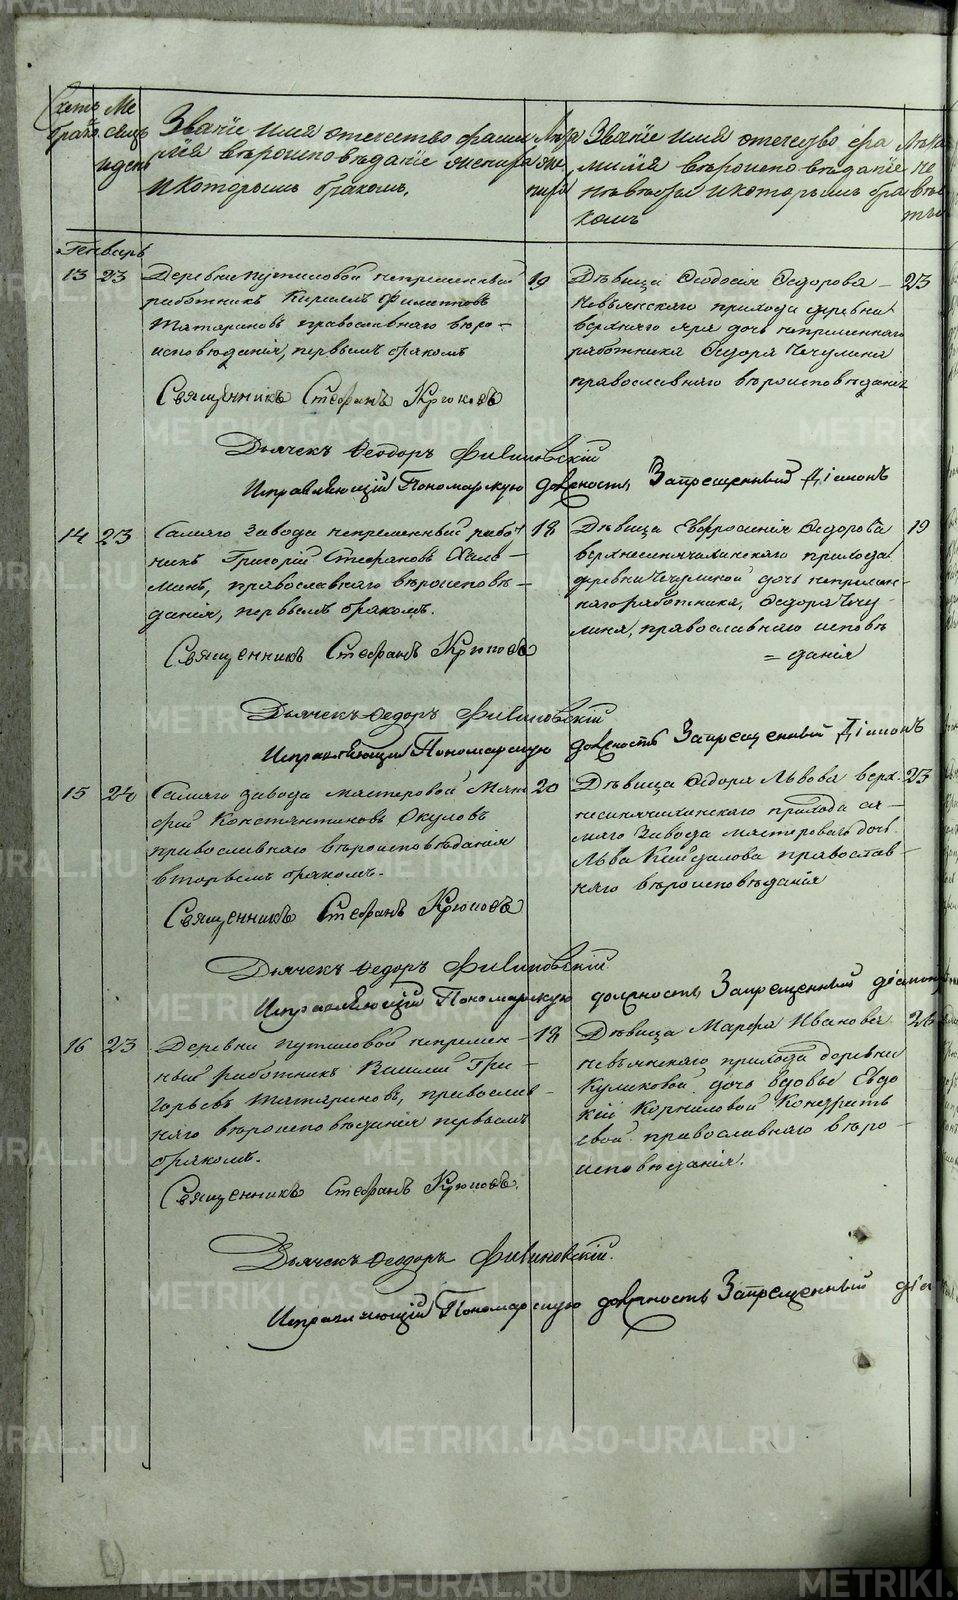 Счетъ браковъ
Месяцъ и день
Званїе имя отечество фами
лїя вѣроисповѣданїе жениха
и которымъ бракомъ.
Лѣта жениха
Званїе имя отечество фа
милїя вѣроисповѣданїе
невѣсты и которымъ бра
комъ
Лѣта невѣсты
Генварь
13 23
Деревни Путиловой непременный
работникъ Кириллъ Филиповъ
Татариновъ православнаго вѣро-
исповѣданія, первымъ бракомъ
19
Дѣвица Феодосія Федорова
Невьянскаго прихода деревни
верхняго яра дочь непременнаго
работника Федора Чечулина
православнаго вѣроисповѣданія
23
Священникъ Стефанъ Крюковъ
Дьячекъ Феодоръ Фивиновскій
Исправляющій Пономарскую должность Запрещенный Діаконъ
14 23
Самаго завода непременный рабо
никъ Григорій Стефановъ
православнаго вѣроисповѣ-
данія, первымъ бракомъ.
18
Дѣвица Евфросинія Федорова
верхнесинячихинскаго прихода
деревни Чечулиной дочь непремен-
наго работника, Федора Чечу
лина, православнаго исповѣ
=данія
19
Священникъ Стефанъ Крюковъ
Дьячекъ Федоръ Фивиновскій
Исправляющій Пономарскую должность Запрещенный Діаконъ
15 24
Самаго завода мастеровой Мат
фей Константиновъ Окуловъ
православнаго вѣроисповѣданія
вторымъ бракомъ.
20
Дѣвица Федора Львова верх-
несинячихинскаго прихода са-
маго Завода мастероваго дочь
Льва Кайгалова православ-
наго вѣроисповѣданія
23
Священникъ Стефанъ Крюковъ
Дьячекъ Федоръ Фивиновскій
Исправляющій Пономарскую должность Запрещенный діаконъ
16 23
Деревни Путиловой непремен-
ный работникъ Василій Гри-
горьевъ Татариновъ, православ-
наго вѣроисповѣданія первымъ
бракомъ.
18
Дѣвица Марфа Иванова
невьянскаго прихода деревни
Куликовой дочь вдовы Евдо
кіи Корниловой Кондрать
евой православнаго вѣро-
исповѣданія.
26
Священникъ Стефанъ Крюковъ.
Дьячекъ Феодоръ Фивиновскій.
Исправляющій Пономарскую должность Запрещенный діа
METRIKI.GASO-URAL.RU